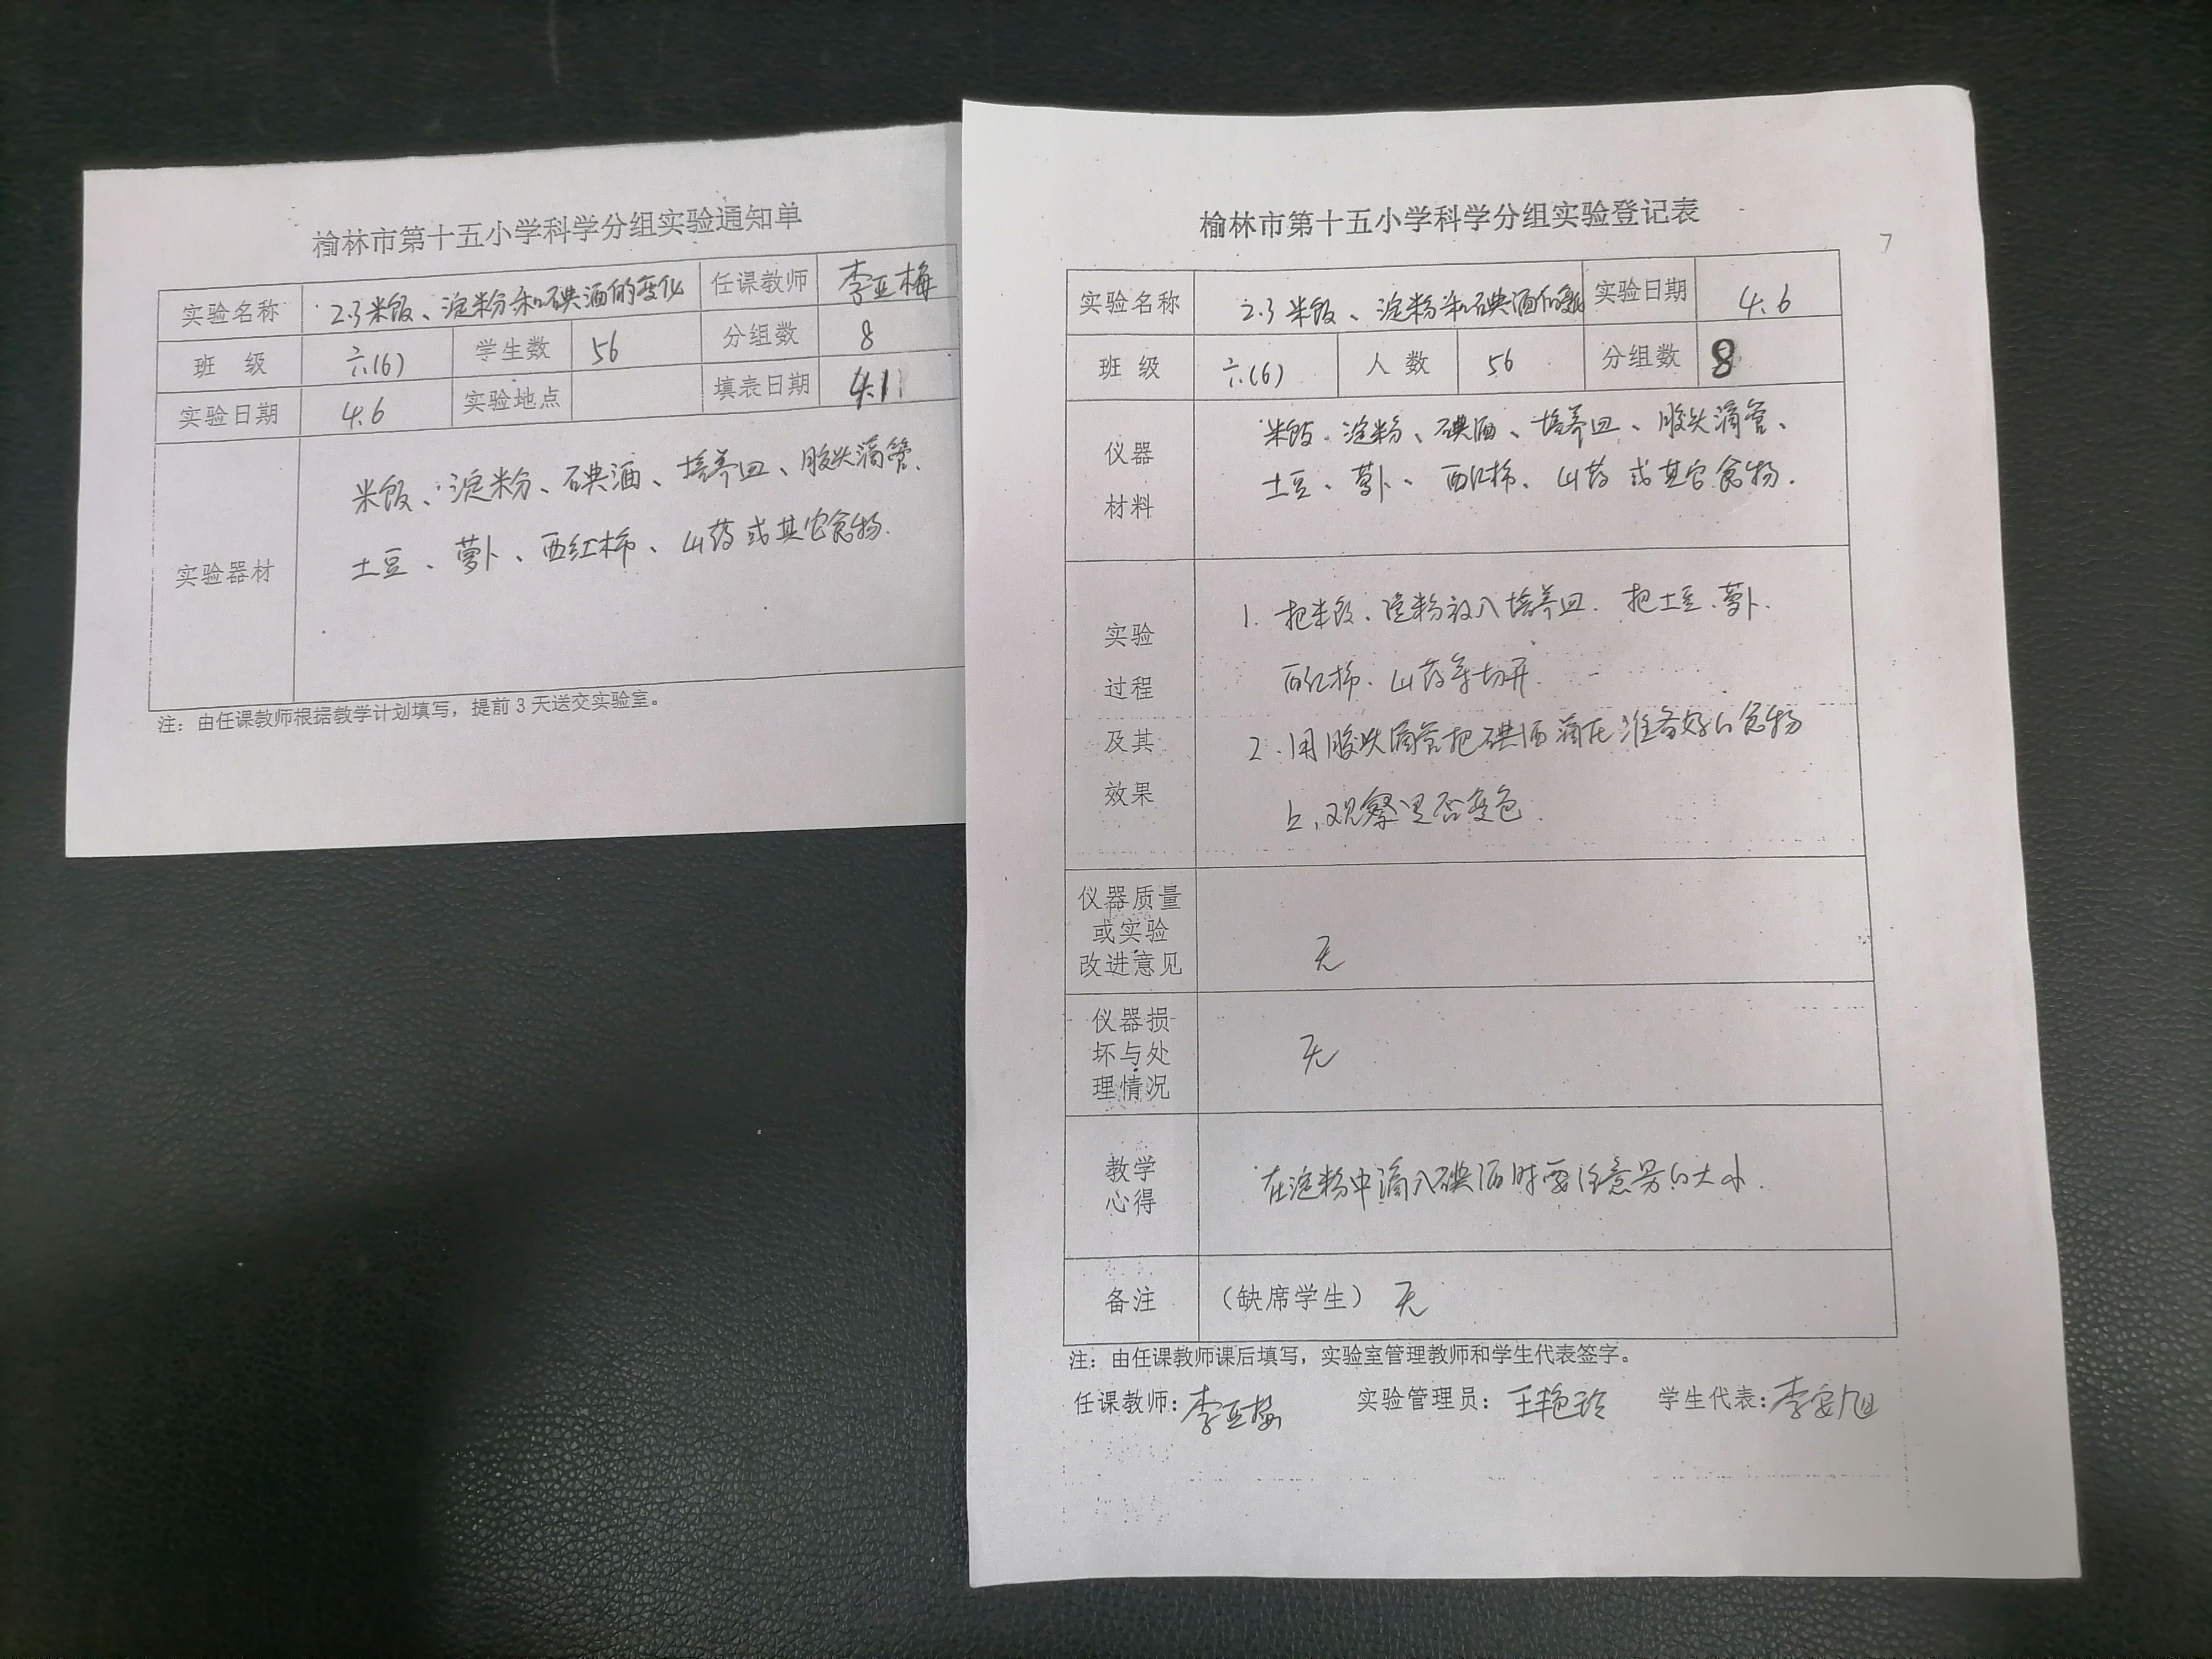 榆林市第十五小学科学分组实验通知单
实验名称 2.3米饭、淀粉和碘酒的变化 任课教师 李亚梅
班 级 六(6) 学生数 56 分组数 8
实验日期 4.6 实验地点 填表日期 4.1
实验器材
米饭、淀粉、碘酒、培养皿、胶头滴管、
土豆、萝卜、西红柿、山药或其它食物.
注：由任课教师根据教学计划填写，提前3天送交实验室。
榆林市第十五小学科学分组实验登记表
7
实验名称 2.3 米饭、淀粉和碘酒的 实验日期 4.6
班 级 六(6) 人 数 56 分组数 8
仪器
材料
米饭、淀粉、碘酒、培养皿、胶头滴管、
土豆、萝卜、西红柿、山药或其它食物.
实验
过程
及其
效果
1. 把米饭、淀粉放入培养皿. 把土豆、萝卜.
西红柿、山药等切开.
2.用胶头滴管把碘酒滴在准备好的食物
上,观察是否变色.
仪器质量
或实验
改进意见
无
仪器损
坏与处
理情况
无
教学
心得
在淀粉中滴入碘酒时要注意量的大小.
备注 （缺席学生） 无
注：由任课教师课后填写，实验室管理教师和学生代表签字。
任课教师：李亚梅 实验管理员：王艳玲 学生代表：李安旭